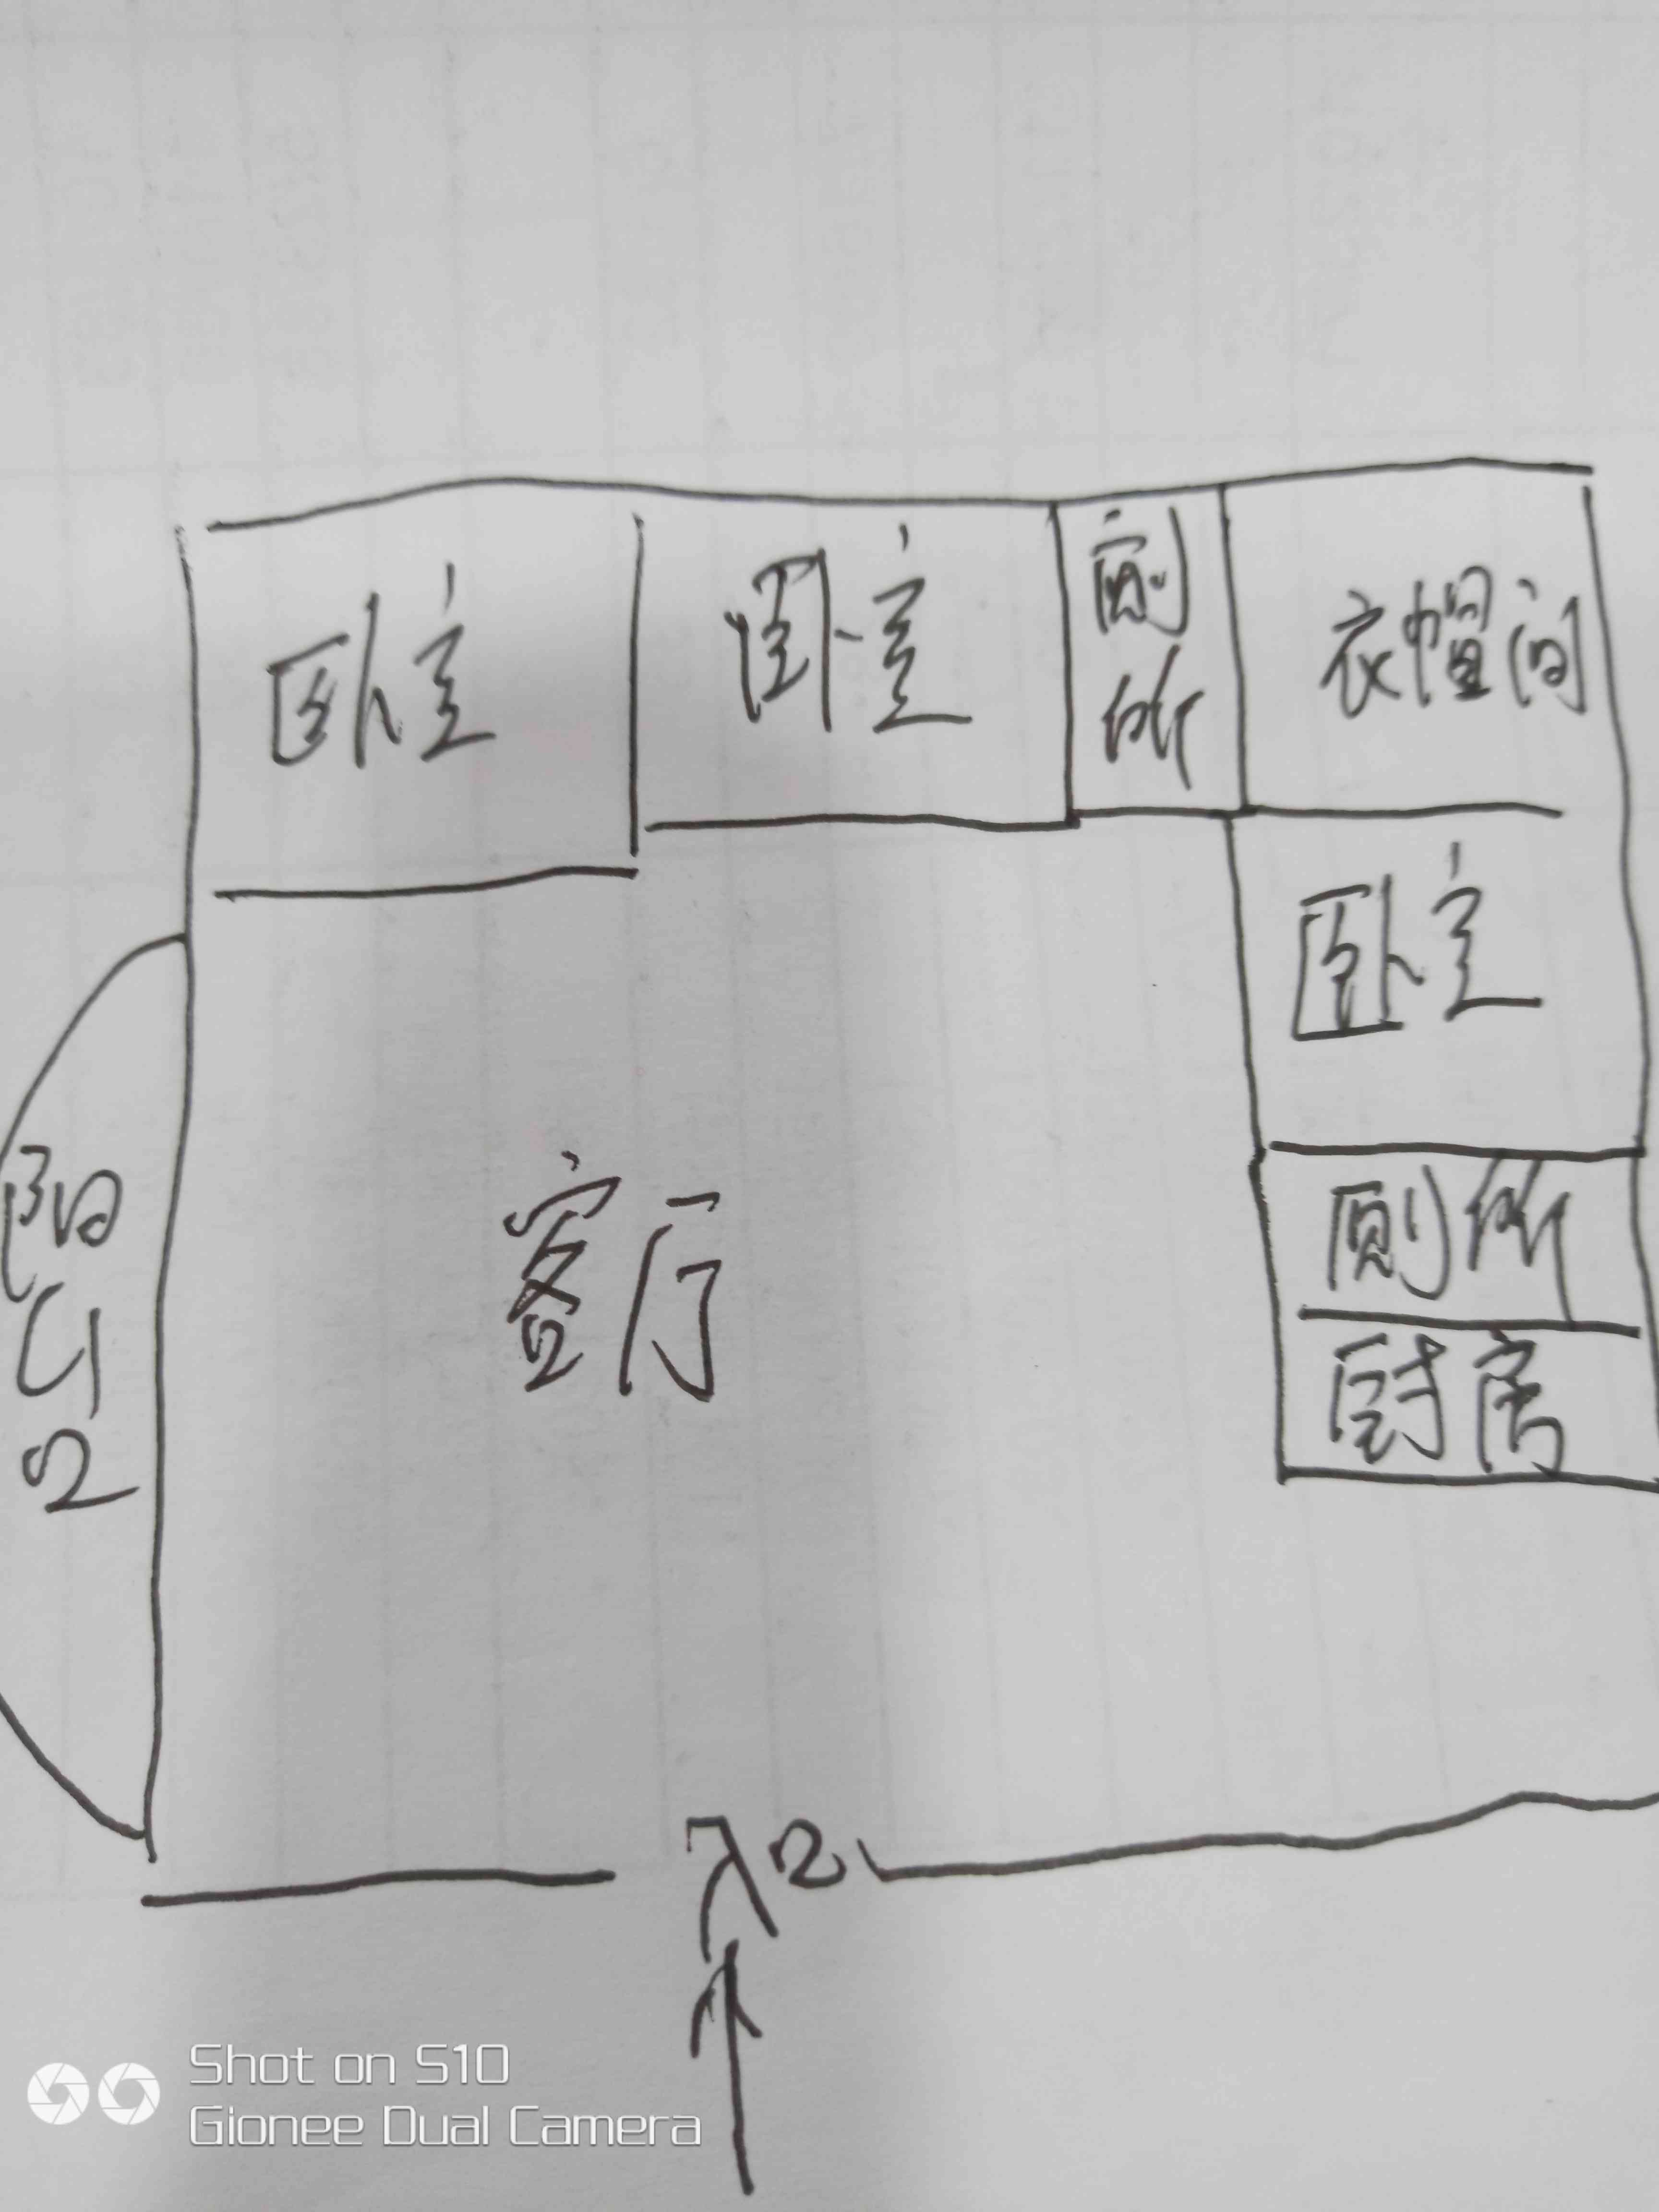 卧室
卧室
厕所
衣帽间
卧室
厕所
厨房
客厅
阳台
入口
Shot on S10
Gionee Dual Camera